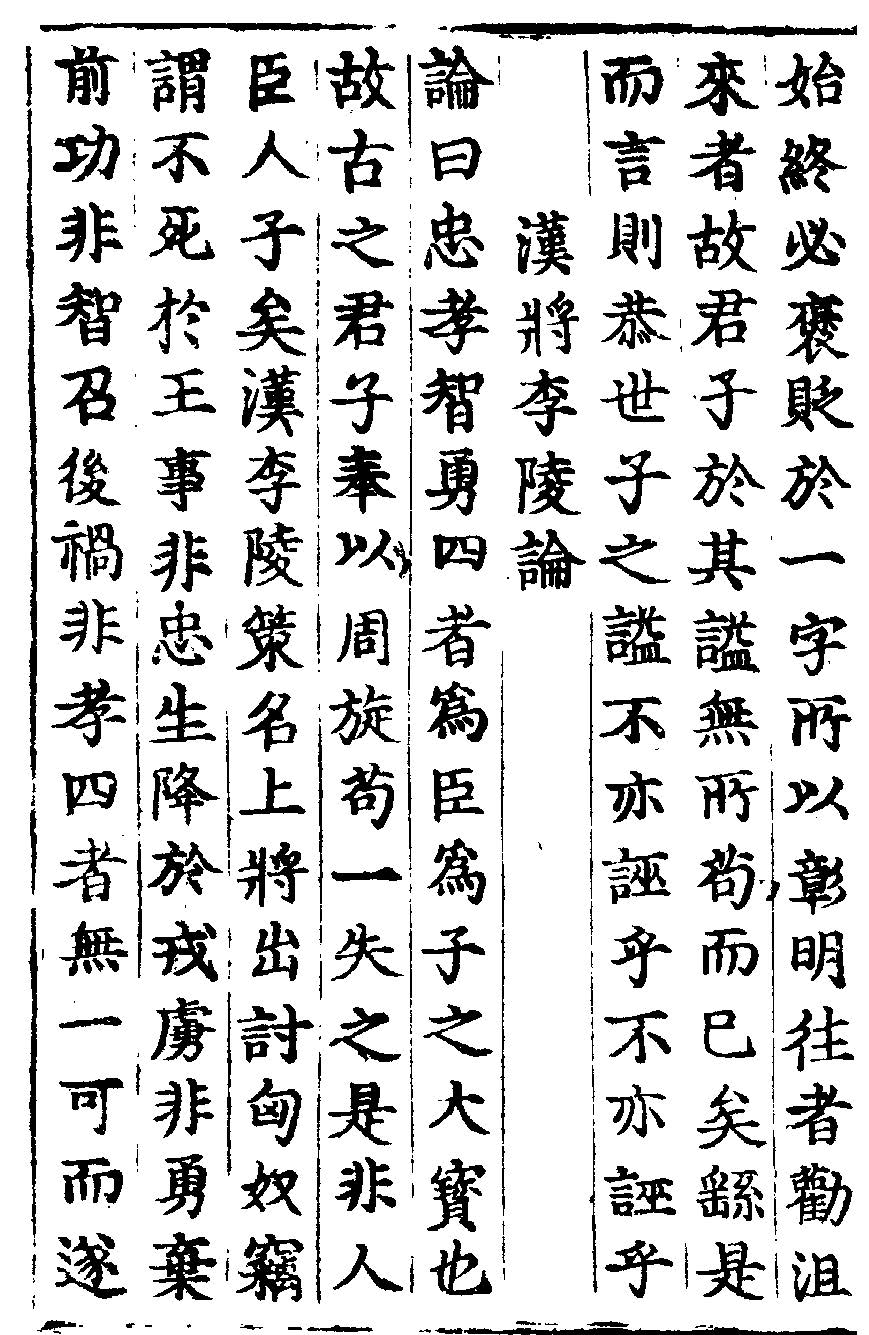 始終必褒貶於一字所以彰明往者勸沮
來者故君子於其謚無所茍而已矣繇是
而言則恭世子之謚不亦誣乎不亦誣乎
漢將李陵論
論曰忠孝智勇四者爲臣爲子之大寶也
故古之君子奉以周旋茍一失之是非人
臣人子矣漢李陵策名上將出討匈奴竊
謂不死於王事非忠生降於戎虜非勇棄
前功非智召後禍非孝四者無一可而遂